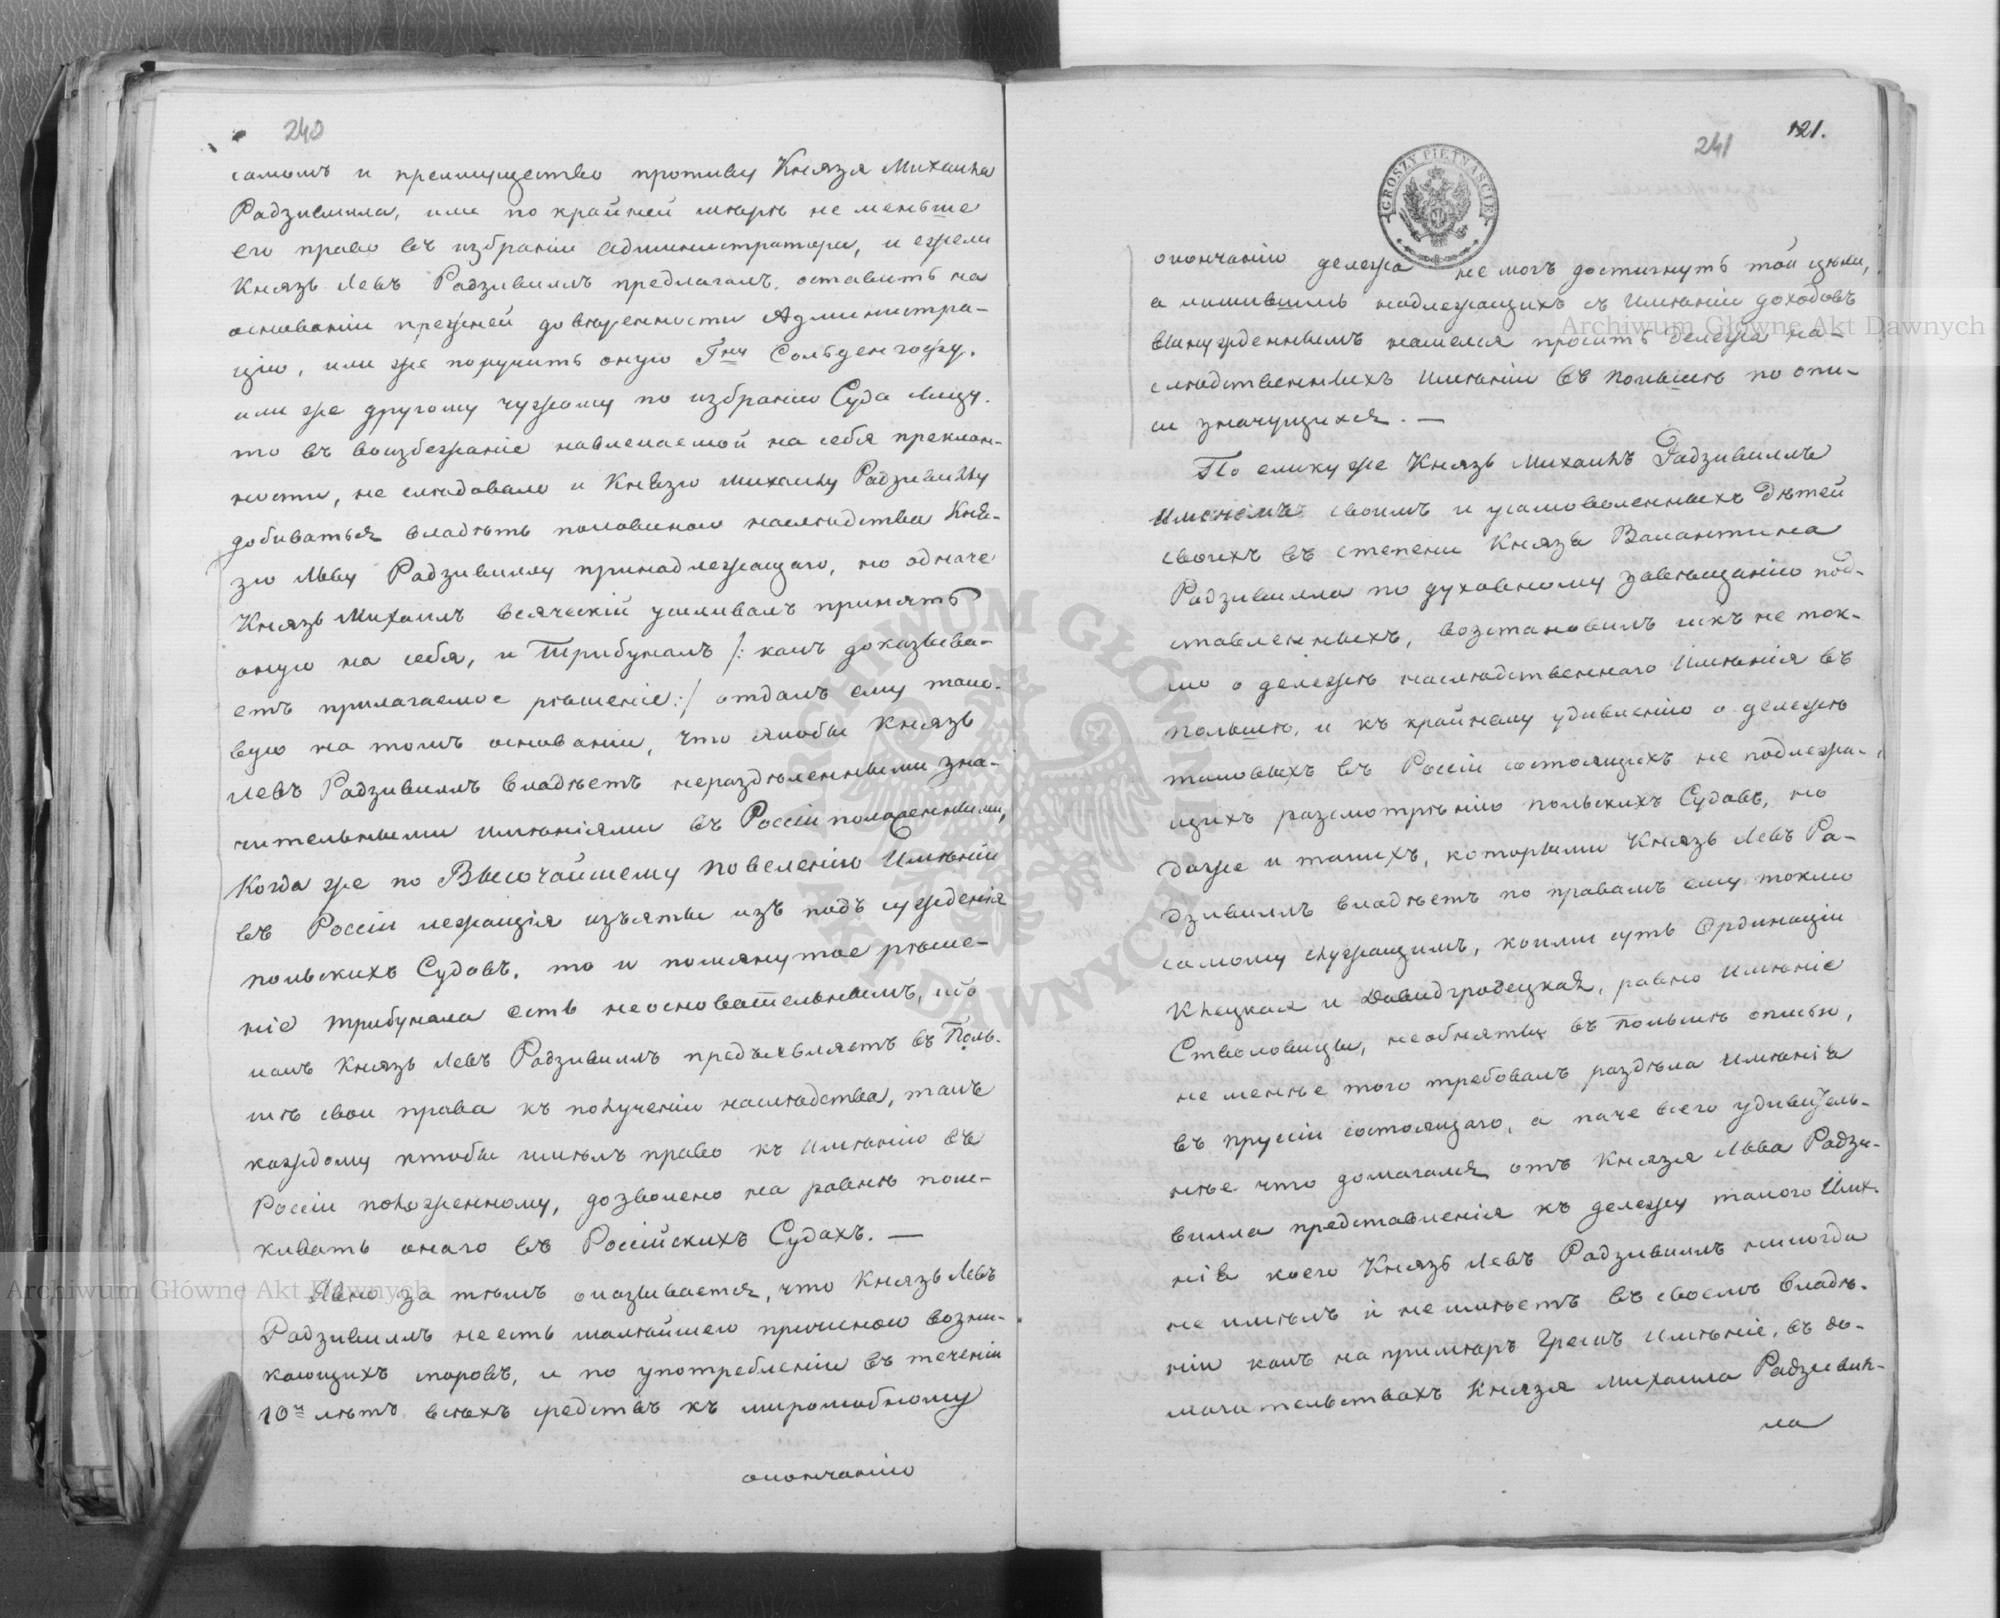 240
самомъ и преимущество противу Князя Михаила
Радзивилла, или по крайней мѣрѣ не меньше
его право въ избраніи Администратора, и ежели
Князь Левъ Радзивиллъ предлагалъ, оставить на
основаніи прежней довѣренности Администра-
цію, или же поручить оную Гну Сольденгофу,
или же другому чужому по избранію Суда лицу.
то въ воизбежаніе навлекаемой на себя преклон-
ности, не слѣдовало и Князю Михаилу Радзивиллу
добиваться владѣть половиною наслѣдства Кня-
зю Льву Радзивиллу принадлежащаго, но одначе
Князь Михаилъ всяческій усиливалъ принять
оную на себя, и Трибуналъ /: какъ доказыва-
етъ прилагаемое рѣшеніе :/ отдалъ ему тако-
вую на томъ основаніи, что якобы Князь
Левъ Радзивиллъ владѣетъ нераздѣленными зна-
чительными имѣніями въ Россіи положенными,
Когда же по Высочайшему повеленію Имѣніи
въ Россіи лежащія изъяты изъ подъ сужденія
польскихъ Судовъ, то и помянутое рѣше-
ніе трибунала есть неосновательнымъ, ибо
какъ Князь Левъ Радзивиллъ предъявляетъ въ Поль-
шѣ свои права къ полученіи наслѣдства, такъ
каждому ктобы имѣлъ право къ Имѣнію въ
Россіи положенному, дозволено на равнѣ поис-
кивать онаго въ Россійскихъ Судахъ. —
Явно за тѣмъ оказывается, что Князь Левъ
Радзивиллъ не есть малѣйшею причиною возни-
кающихъ споровъ, и по употребленіи въ теченіи
10ти лѣтъ всѣхъ средствъ къ миролюбному
окончанію
241
121.
GROSZY PIĘTNAŚCIE
окончанію дележа не могъ достигнуть той цѣли,
а лишившись надлежащихъ съ Имѣніи доходовъ
вынужденнымъ нашелся просить дележа на-
слѣдственныхъ Имѣніи въ Польшѣ по опи-
си значущихся. —
По елику же Князь Михаилъ Радзивиллъ
Именемъ своимъ и усамоволенныхъ Дѣтей
своихъ въ степени Князя Валантина
Радзивилла по духовному завѣщанію под-
ставленныхъ, возстановилъ искъ не ток-
мо о дележѣ наслѣдственнаго Имѣнія въ
Польшѣ, и къ крайнему удивленію о дележѣ
таковыхъ въ Россіи состоящихъ не подлежа-
щихъ разсмотрѣнію польскихъ Судовъ, но
даже и такихъ, которыми Князь Левъ Ра-
дзивиллъ владѣетъ по правамъ ему токмо
самому служащимъ, коими суть Ординаціи
Клецкая и Давидгродецкая, равно Имѣніе
Стволовицы, необняты въ Польшѣ описью,
не менѣе того требовалъ раздѣла Имѣнія
въ Пруссіи состоящаго, а паче всего удивитель-
нѣе что домагался отъ Князя Льва Радзи-
вилла представленія къ дележу такого Имѣ-
нія коего Князь Левъ Радзивиллъ никогда
не имѣлъ и не имѣетъ въ своемъ владѣ-
ніи какъ на примѣръ Грескъ Имѣніе, въ до-
магательствахъ Князя Михаила Радзивил-
ла
Archiwum Główne Akt Dawnych
Archiwum Główne Akt Dawnych
ARCHIWUM GŁÓWNE AKT DAWNYCH